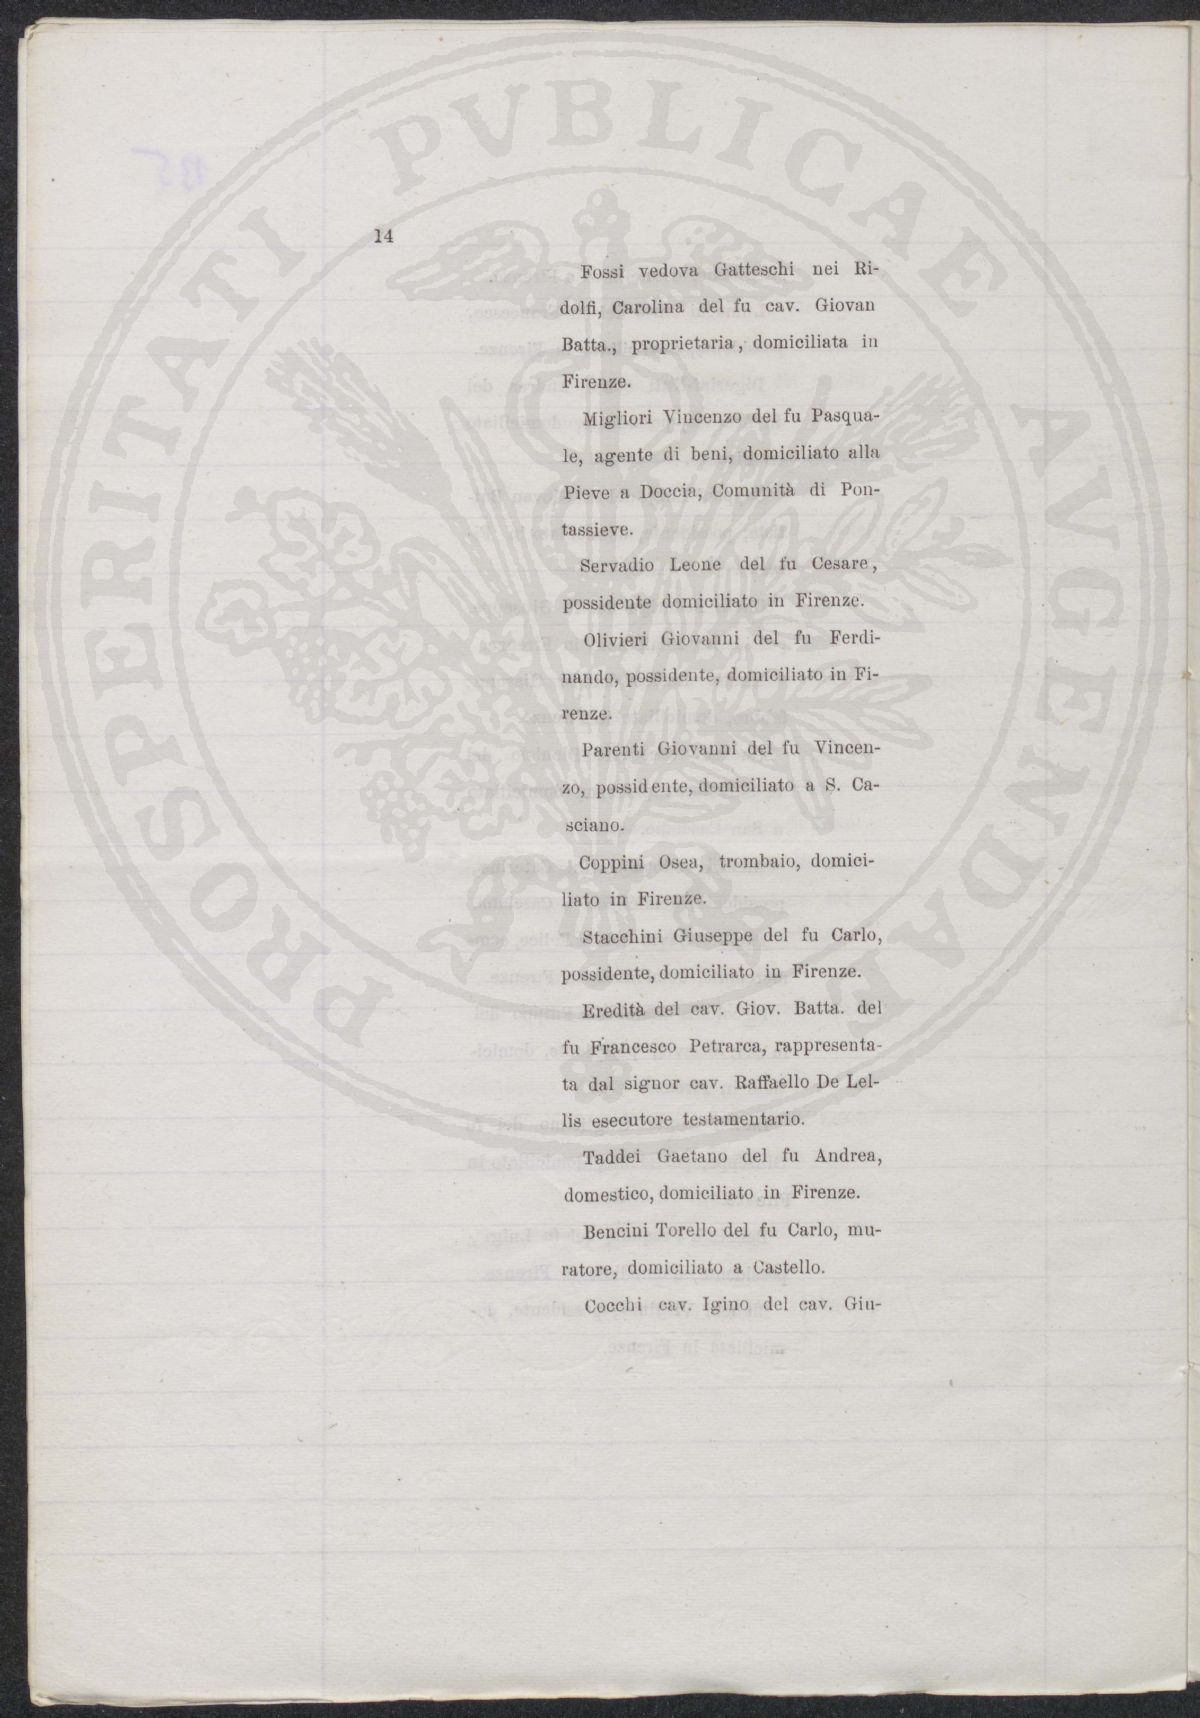 PROSPERITATI PVBLICAE AVGENDAE
14
Fossi vedova Gatteschi nei Ri-
dolfi, Carolina del fu cav. Giovan
Batta., proprietaria, domiciliata in
Firenze.
Migliori Vincenzo del fu Pasqua-
le, agente di beni, domiciliato alla
Pieve a Doccia, Comunità di Pon-
tassieve.
Servadio Leone del fu Cesare,
possidente domiciliato in Firenze.
Olivieri Giovanni del fu Ferdi-
nando, possidente, domiciliato in Fi-
renze.
Parenti Giovanni del fu Vincen-
zo, possidente, domiciliato a S. Ca-
sciano.
Coppini Osea, trombaio, domici-
liato in Firenze.
Stacchini Giuseppe del fu Carlo,
possidente, domiciliato in Firenze.
Eredità del cav. Giov. Batta. del
fu Francesco Petrarca, rappresenta-
ta dal signor cav. Raffaello De Lel-
lis esecutore testamentario.
Taddei Gaetano del fu Andrea,
domestico, domiciliato in Firenze.
Bencini Torello del fu Carlo, mu-
ratore, domiciliato a Castello.
Cocchi cav. Igino del cav. Giu-